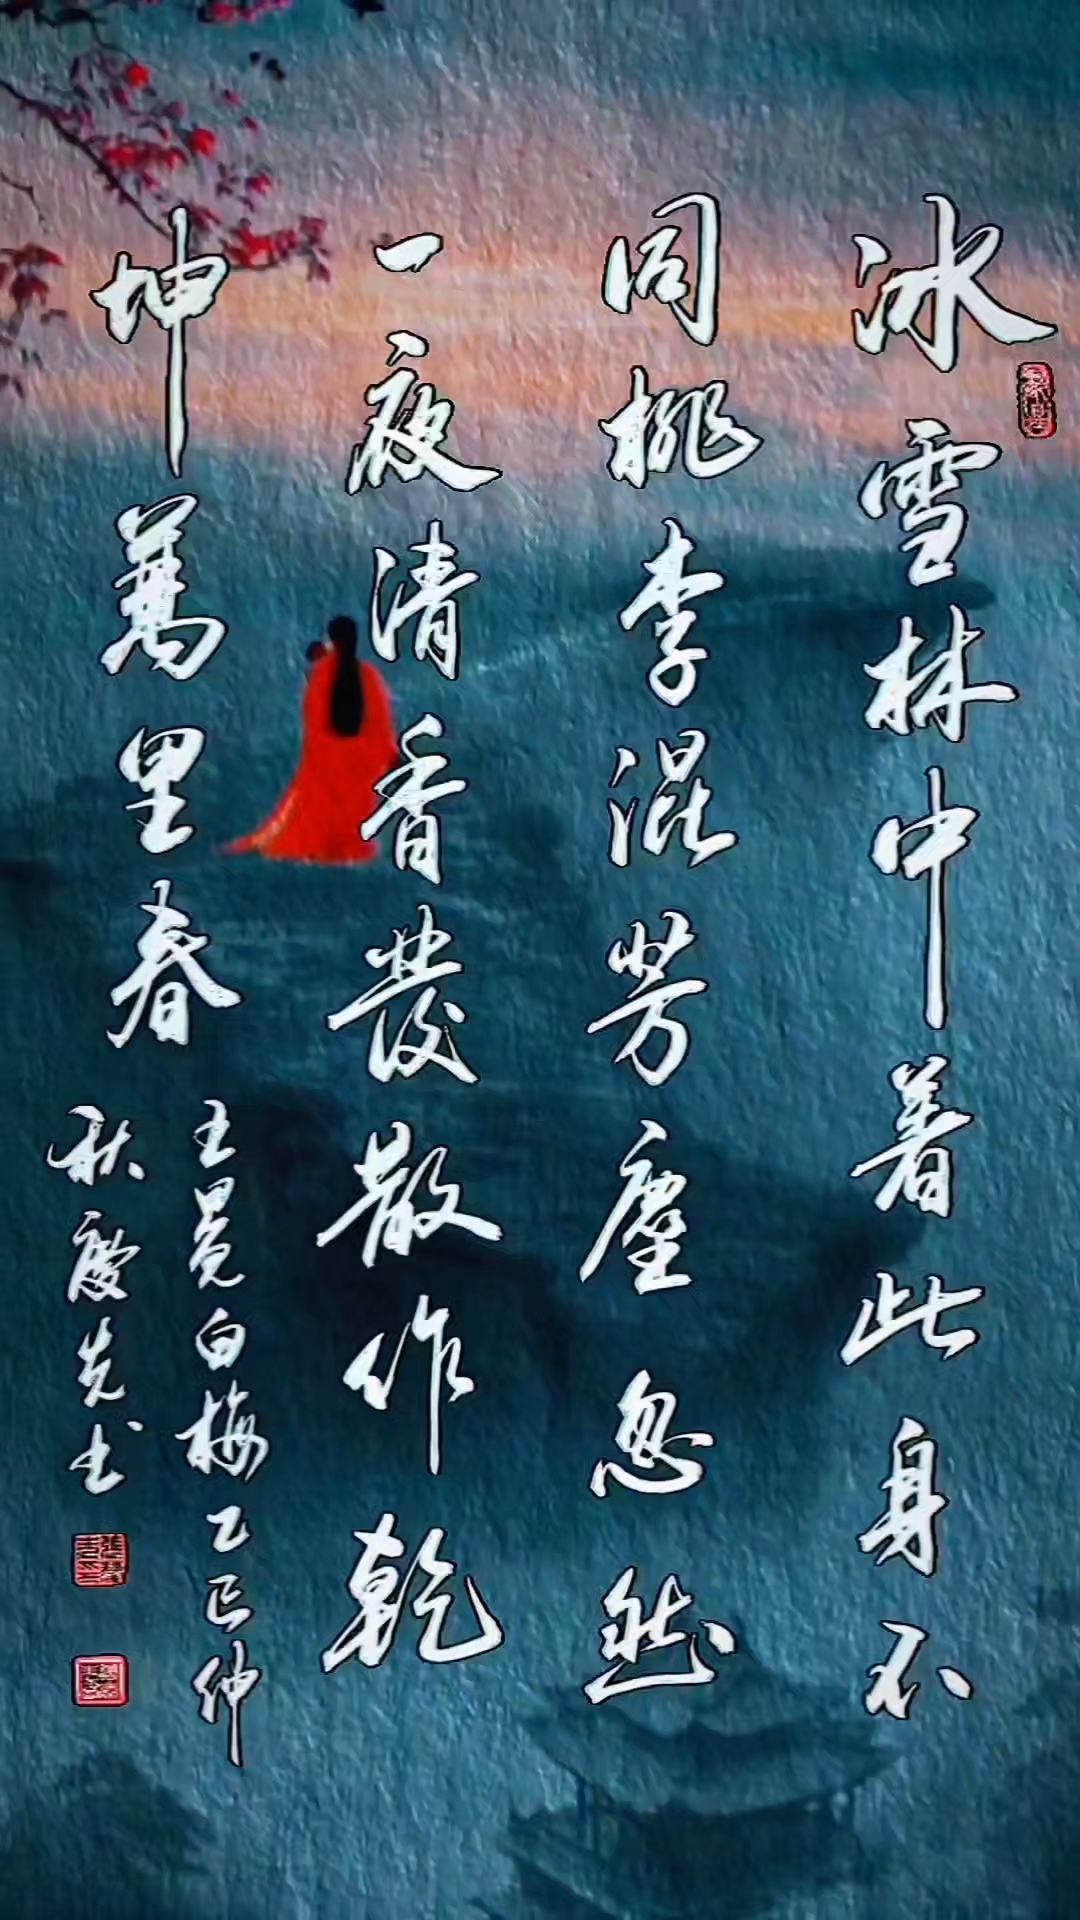 冰雪林中著此身不
同桃李混芳塵忽然
一夜清香發散作乾
坤萬里春
王冕白梅乙巳仲
秋慶先书